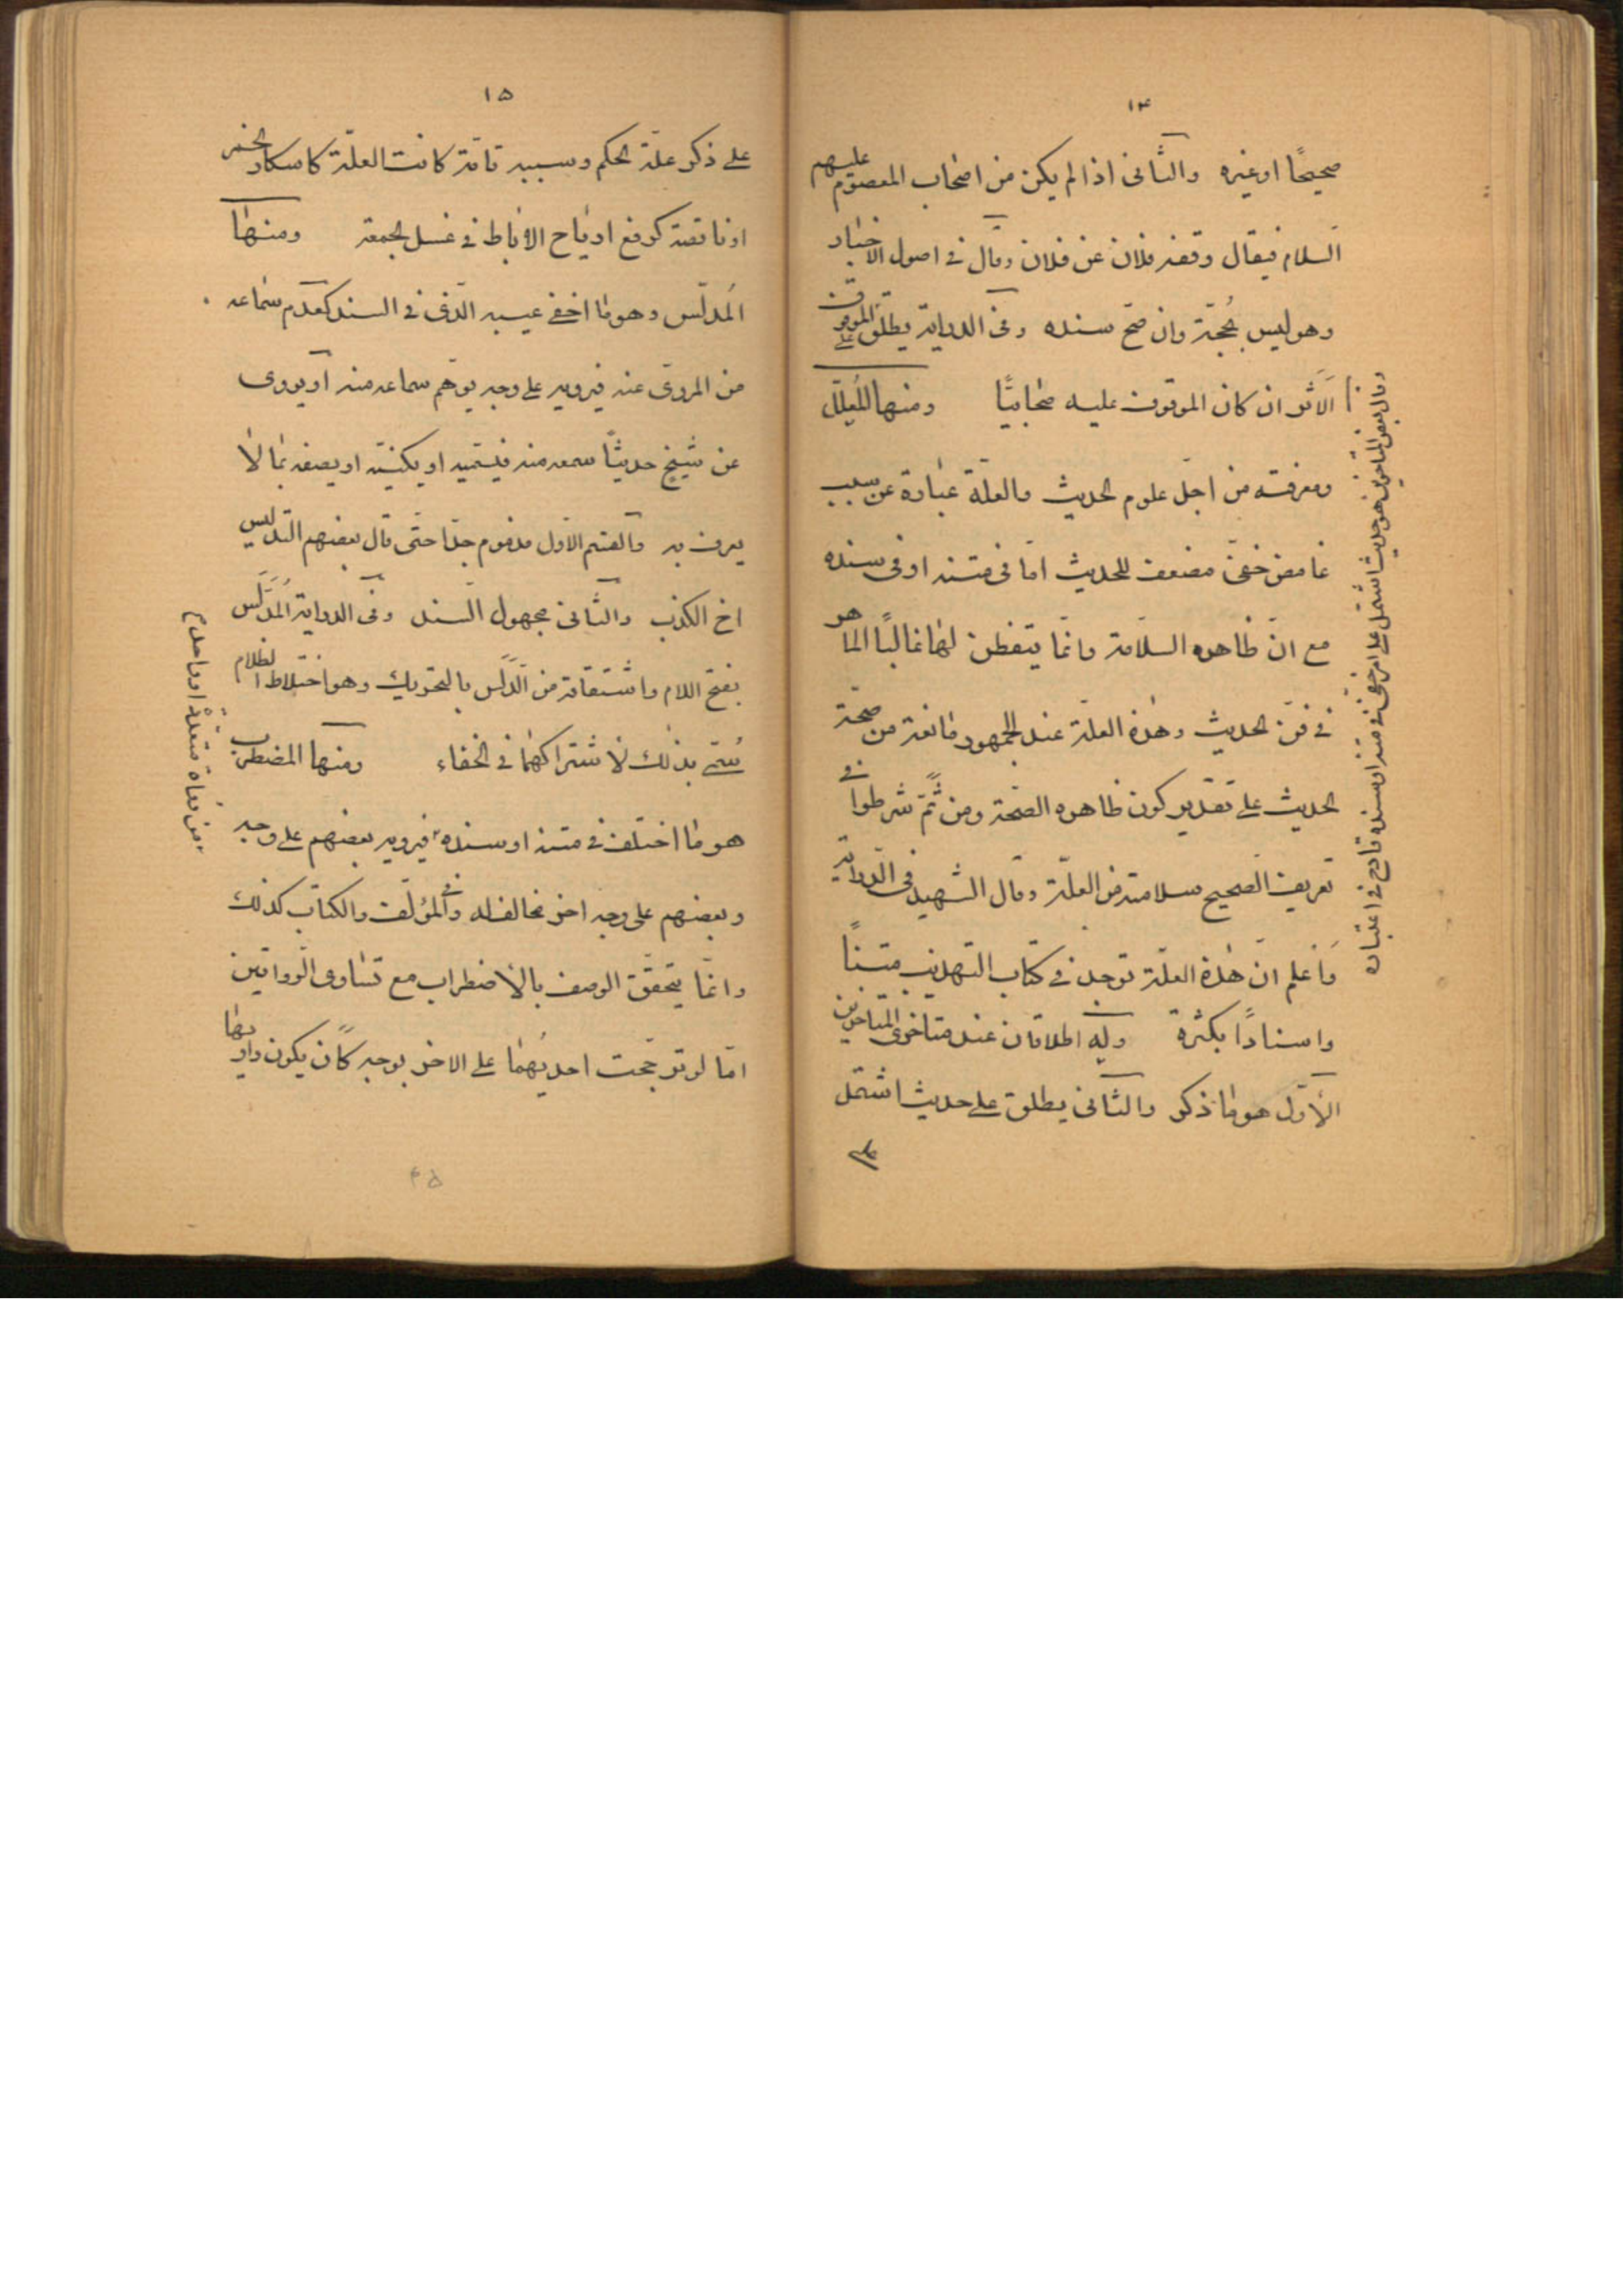 ١٤
صحيحًا او غيره والثانى اذا لم يكن من اصحاب المعصوم عليهم
السلام فيقال وقفه فلان عن فلان وقال فى اصول الاخيار
وهو ليس بحجّة وان صحّ سنده وفى الدراية يطلق على الموقوف
الأثر ان كان الموقوف عليه صحابيًّا ومنها المُعلّل
ومعرفته من اجلّ علوم الحديث والعلّة عبارة عن سبب
غامض خفىّ مضعف للحديث امّا فى متنه او فى سنده
مع انّ ظاهره السلامة وانّما يتفطن لها غالبًا الماهر
فى فنّ الحديث وهذه العلّة عند الجمهور مانعة من صحّة
الحديث على تقدير كون ظاهره الصّحة ومن ثَمّ شرطوا فى
تعريف الصحيح سلامته من العلّة وقال الشهيد فى الدّراية
واعلم انّ هذه العلّة توجد فى كتاب التهذيب متنًا
واسنادًا بكثرة وله اطلاقان عند متاخرى المتاخرين
الأوّل هو ما ذكر والثانى يطلق على حديث اشتمل
على
وقال بعض المتاخرين هو حديث اشتمل على امر خفىّ فى متنه او سنده قادح فى اعتباره
١٥
على ذكر علّة الحكم وسببه تامّة كانت العلّة كاسكار الخمر
او ناقصة كرفع ارياح الاباط فى غسل الجمعة ومنها
المُدلّس وهو ما اخفى عيبه الّذى فى السند كعدم سماعه
من المروىّ عنه فيرويه على وجه يوهّم سماعه منه او يروى
عن شيخ حديثًا سمعه منه فيسمّيه او يكنّيه او يصفه بما لا
يعرف به والقسم الاوّل مذموم جدّا حتّى قال بعضهم التدليس
اخ الكذب والثانى مجهول السّند وفى الدراية المُدَلَّس
بفتح اللام واشتقاقه من الدَّلَس بالتحريك وهو اختلاط الظلام
سُمّى بذلك لاشتراكهما فى الخفاء ومنها المضطرب
هو ما اختلف فى متنه او سنده فيرويه بعضهم على وجه
وبعضهم على وجه اخر مخالف له وفى المؤلّف والكتاب كذلك
وانّما يتحقّق الوصف بالاضطراب مع تساوى الرّوايتين
امّا لو ترجّحت احديهما على الاخر بوجه كأن يكون راويها
من رواة متعدّدة او واحد م
٤٥